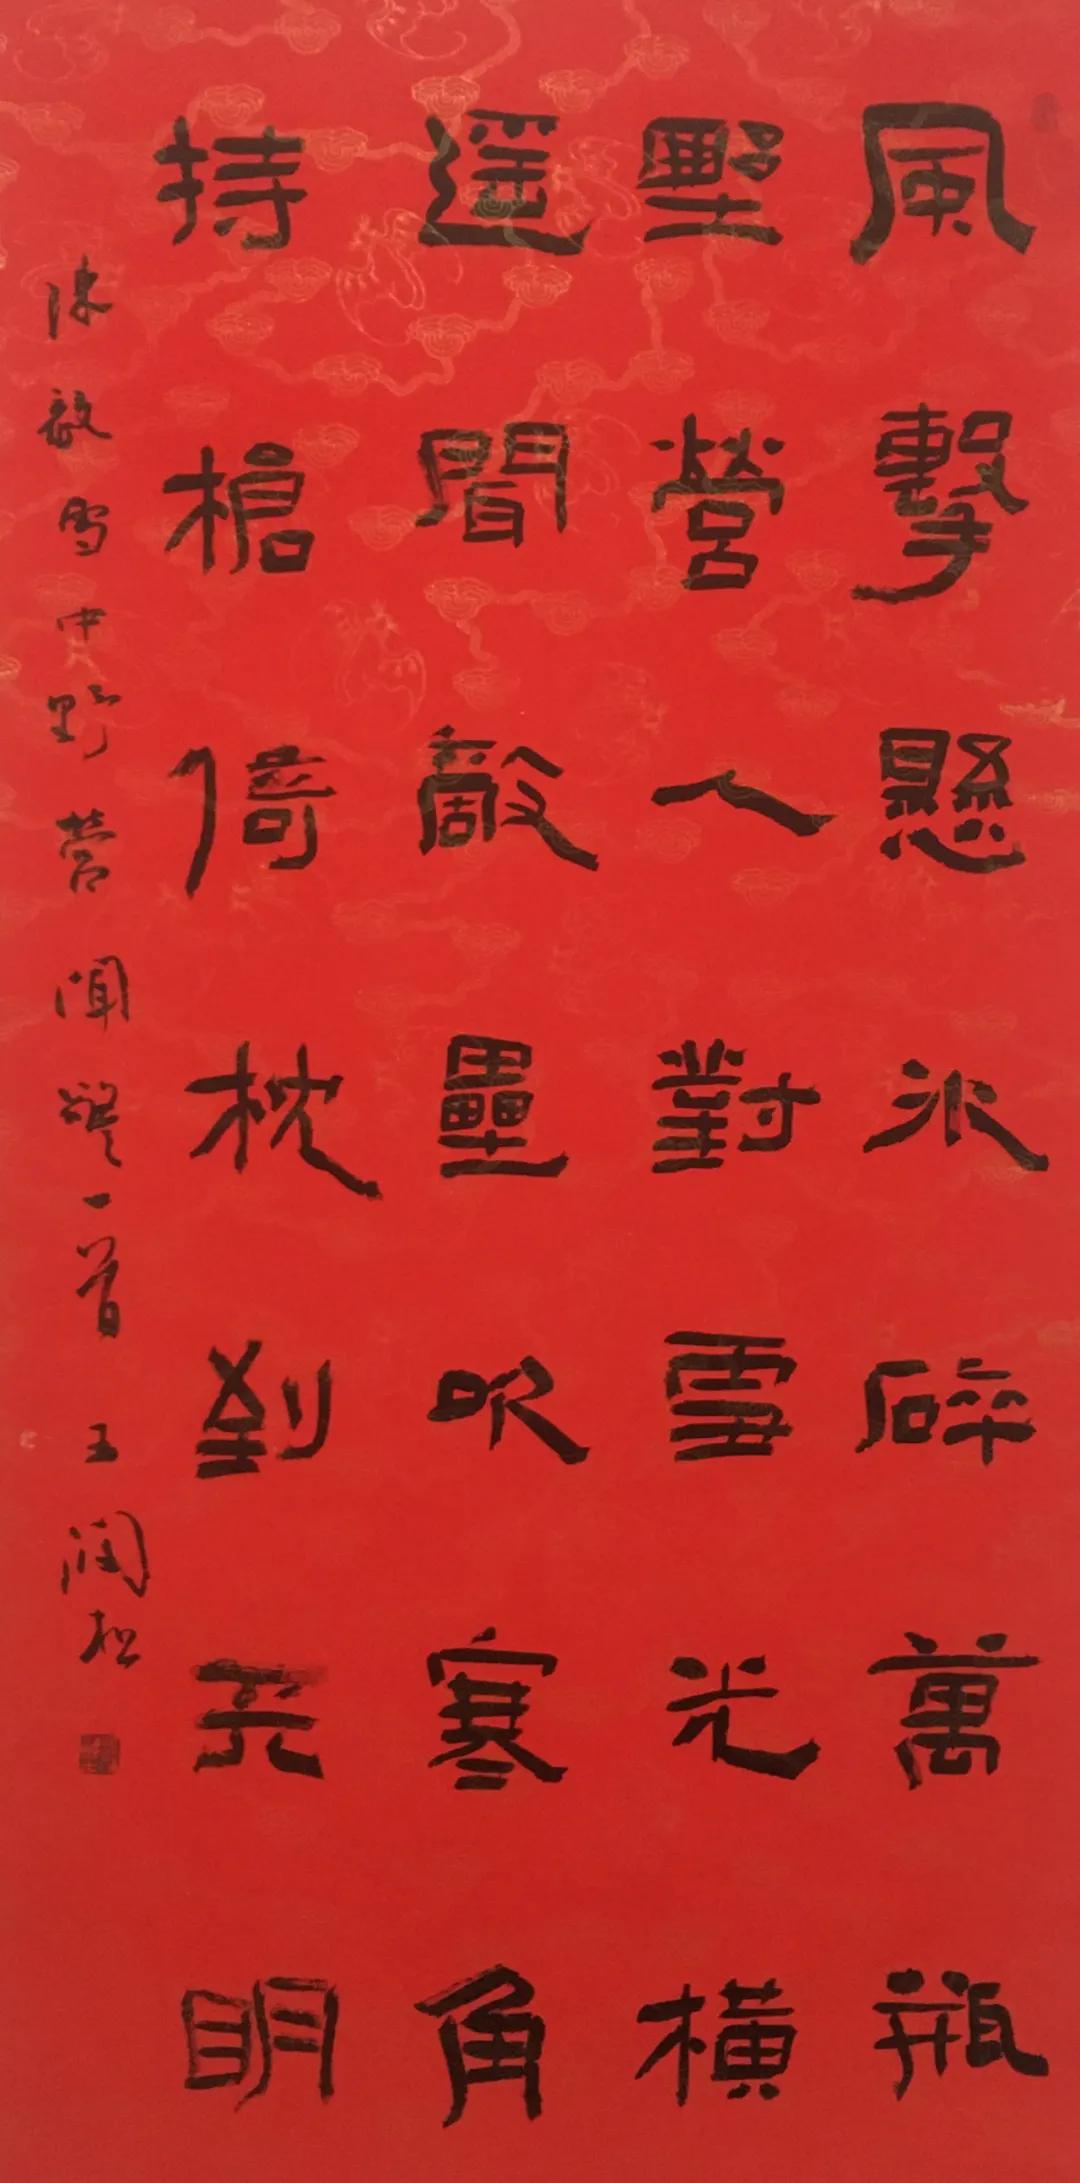 風擊懸冰碎萬瓶
野營人對雪光橫
遥聞敵壘吹寒角
持槍倚枕到天明
陳毅雪中野營聞警一首 王润松